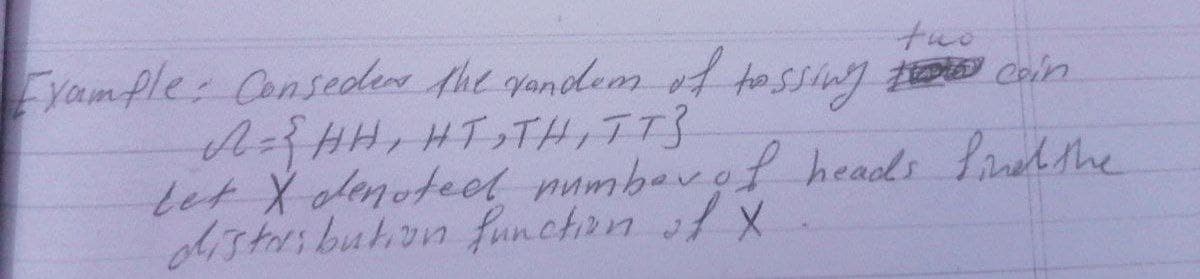 two
Example: Conseder the random of tossing coin
Ω={HH, HT, TH, TT}
Let X denoted number of heads find the
distribution function of X.